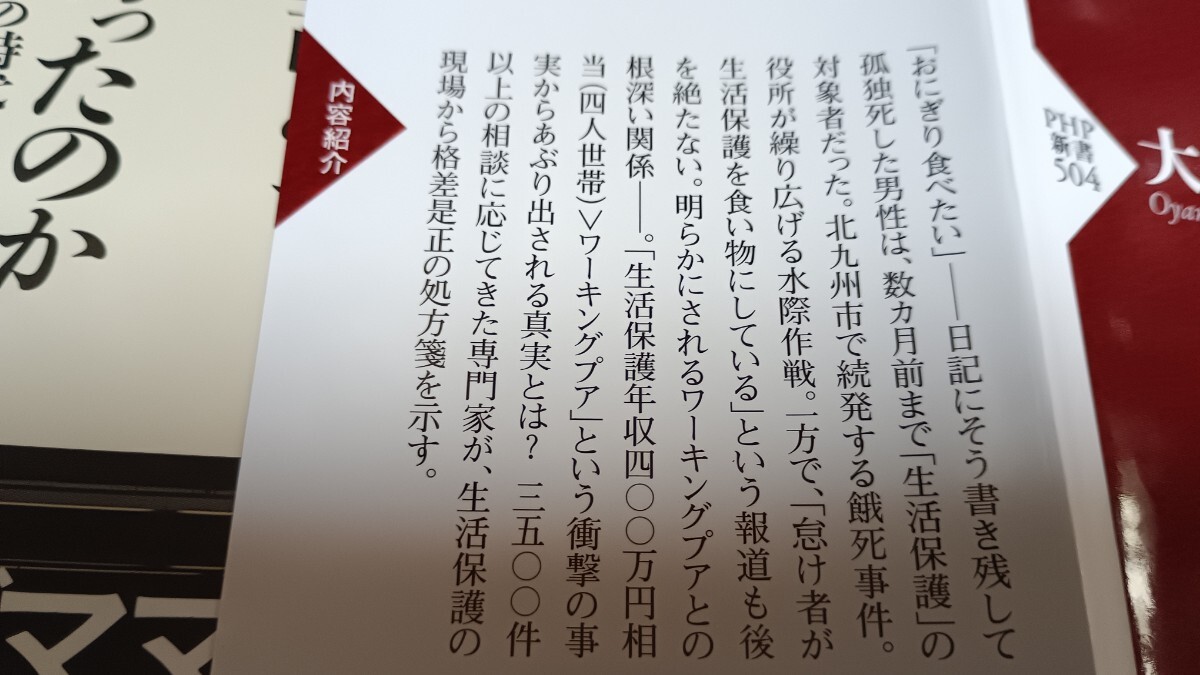 大
Oyam
PHP
新書
504
「おにぎり食べたい」――日記にそう書き残して
孤独死した男性は、数カ月前まで「生活保護」の
対象者だった。北九州市で続発する餓死事件。
役所が繰り広げる水際作戦。一方で、「怠け者が
生活保護を食い物にしている」という報道も後
を絶たない。明らかにされるワーキングプアとの
根深い関係――。「生活保護年収四〇〇万円相
当(四人世帯)＞ワーキングプア」という衝撃の事
実からあぶり出される真実とは? 三五〇〇件
以上の相談に応じてきた専門家が、生活保護の
現場から格差是正の処方箋を示す。
内容紹介
ったのか
の時
ママ